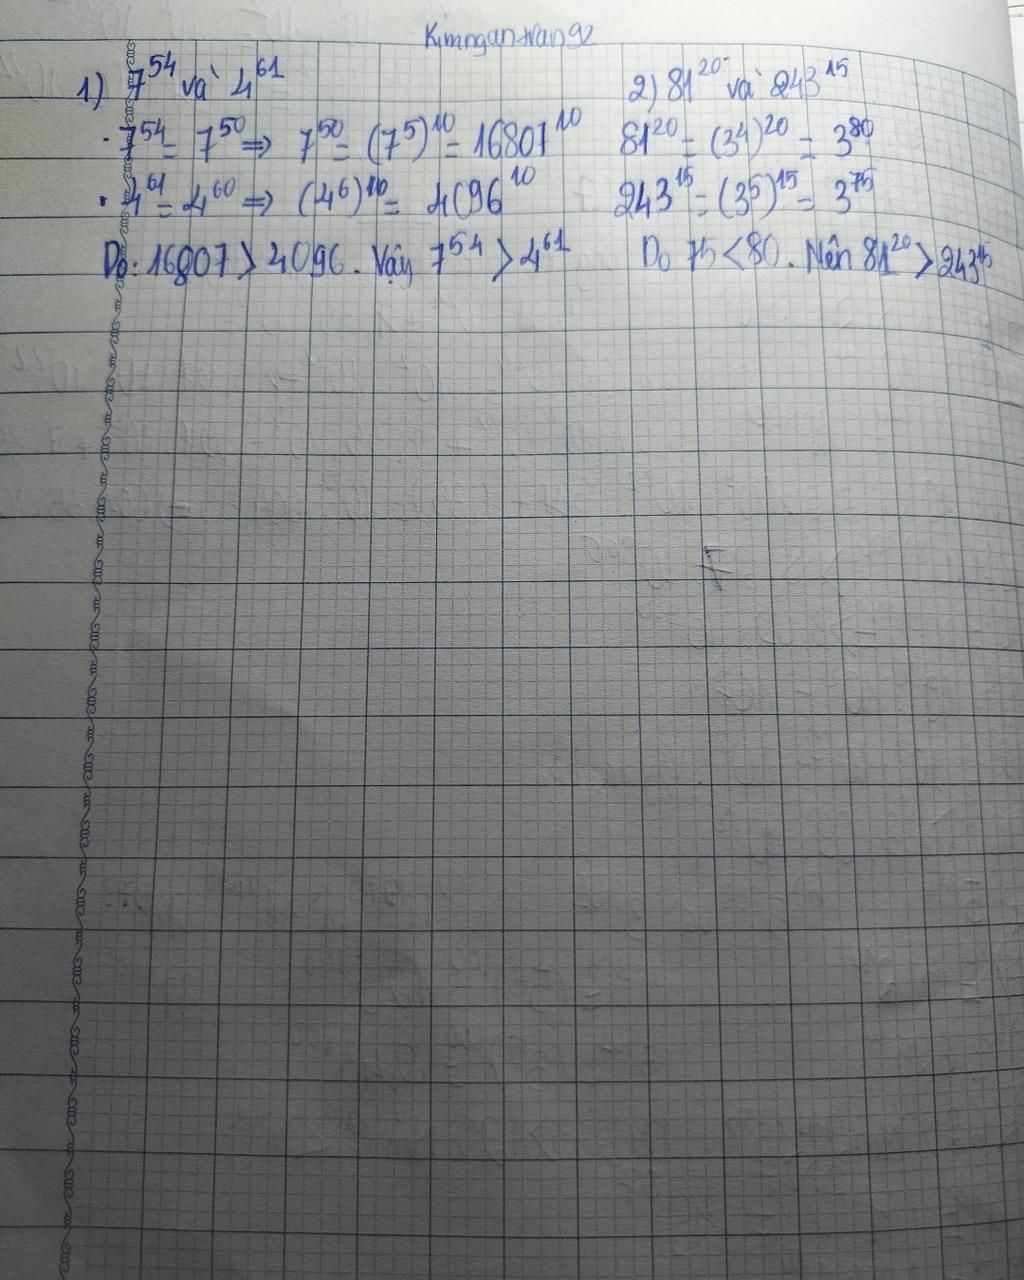 Kimngantran92
1) 7^54 và 4^61
· 7^54 = 7^50 => 7^50 = (7^5)^10 = 16807^10
· 4^61 = 4^60 => (4^6)^10 = 4096^10
Do: 16807 > 4096. Vậy 7^54 > 4^61
2) 81^20 và 243^15
81^20 = (3^4)^20 = 3^80
243^15 = (3^5)^15 = 3^75
Do 75 < 80. Nên 81^20 > 243^15